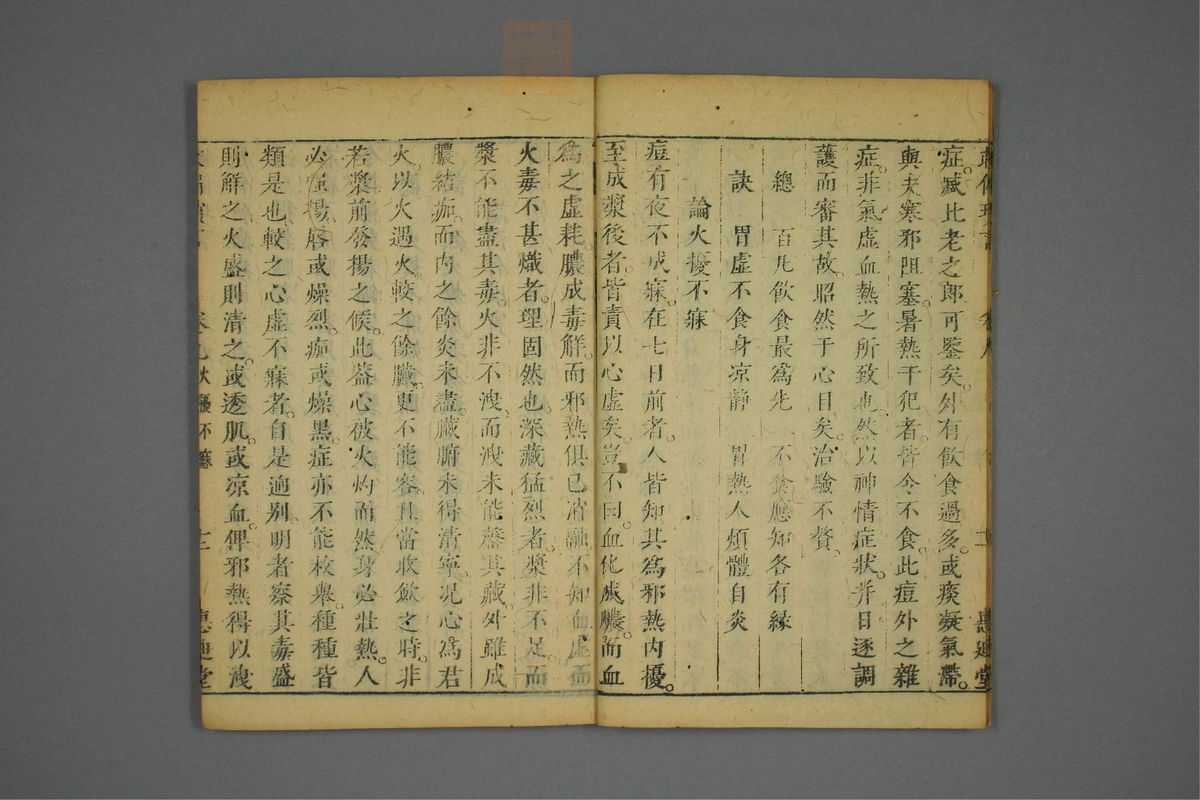 症臧比老之郎可鑒矣外有飲食過多或痰凝氣滯
與夫寒邪阻塞暑熱干犯者皆令不食此痘外之雜
症非氣虛血熱之所致也然以神情症狀并日逐調
護而審其故昭然于心目矣治驗不贅
總 百凡飲食最為先 不食應知各有緣
訣 胃虛不食身凉靜 胃熱人煩體自炎
論火擾不寐
痘有夜不成寐在七日前者人皆知其為邪熱內擾
至成漿後者皆責以心虛矣豈不曰血化成膿而血
為之虛耗膿成毒解而邪熱俱已消融不知血虛而
火毒不甚熾者理固然也深藏猛烈者漿非不足而
漿不能盡其毒火非不洩而洩未能罄其藏外雖成
膿結痂而內之餘炎未盡臟腑未得清寧况心為君
火以火遇火較之餘臟更不能容且當收斂之時非
若漿前發揚之候此蓋心被火灼而然身必壯熱人
必 揚唇或燥烈痂或燥黑症亦不能枚舉種種皆
類是也較之心虛不寐者自是逈別明者察其毒盛
則解之火盛則清之或透肌或凉血俾邪熱得以洩
火擾不寐 十二 惠迪堂
惠迪堂